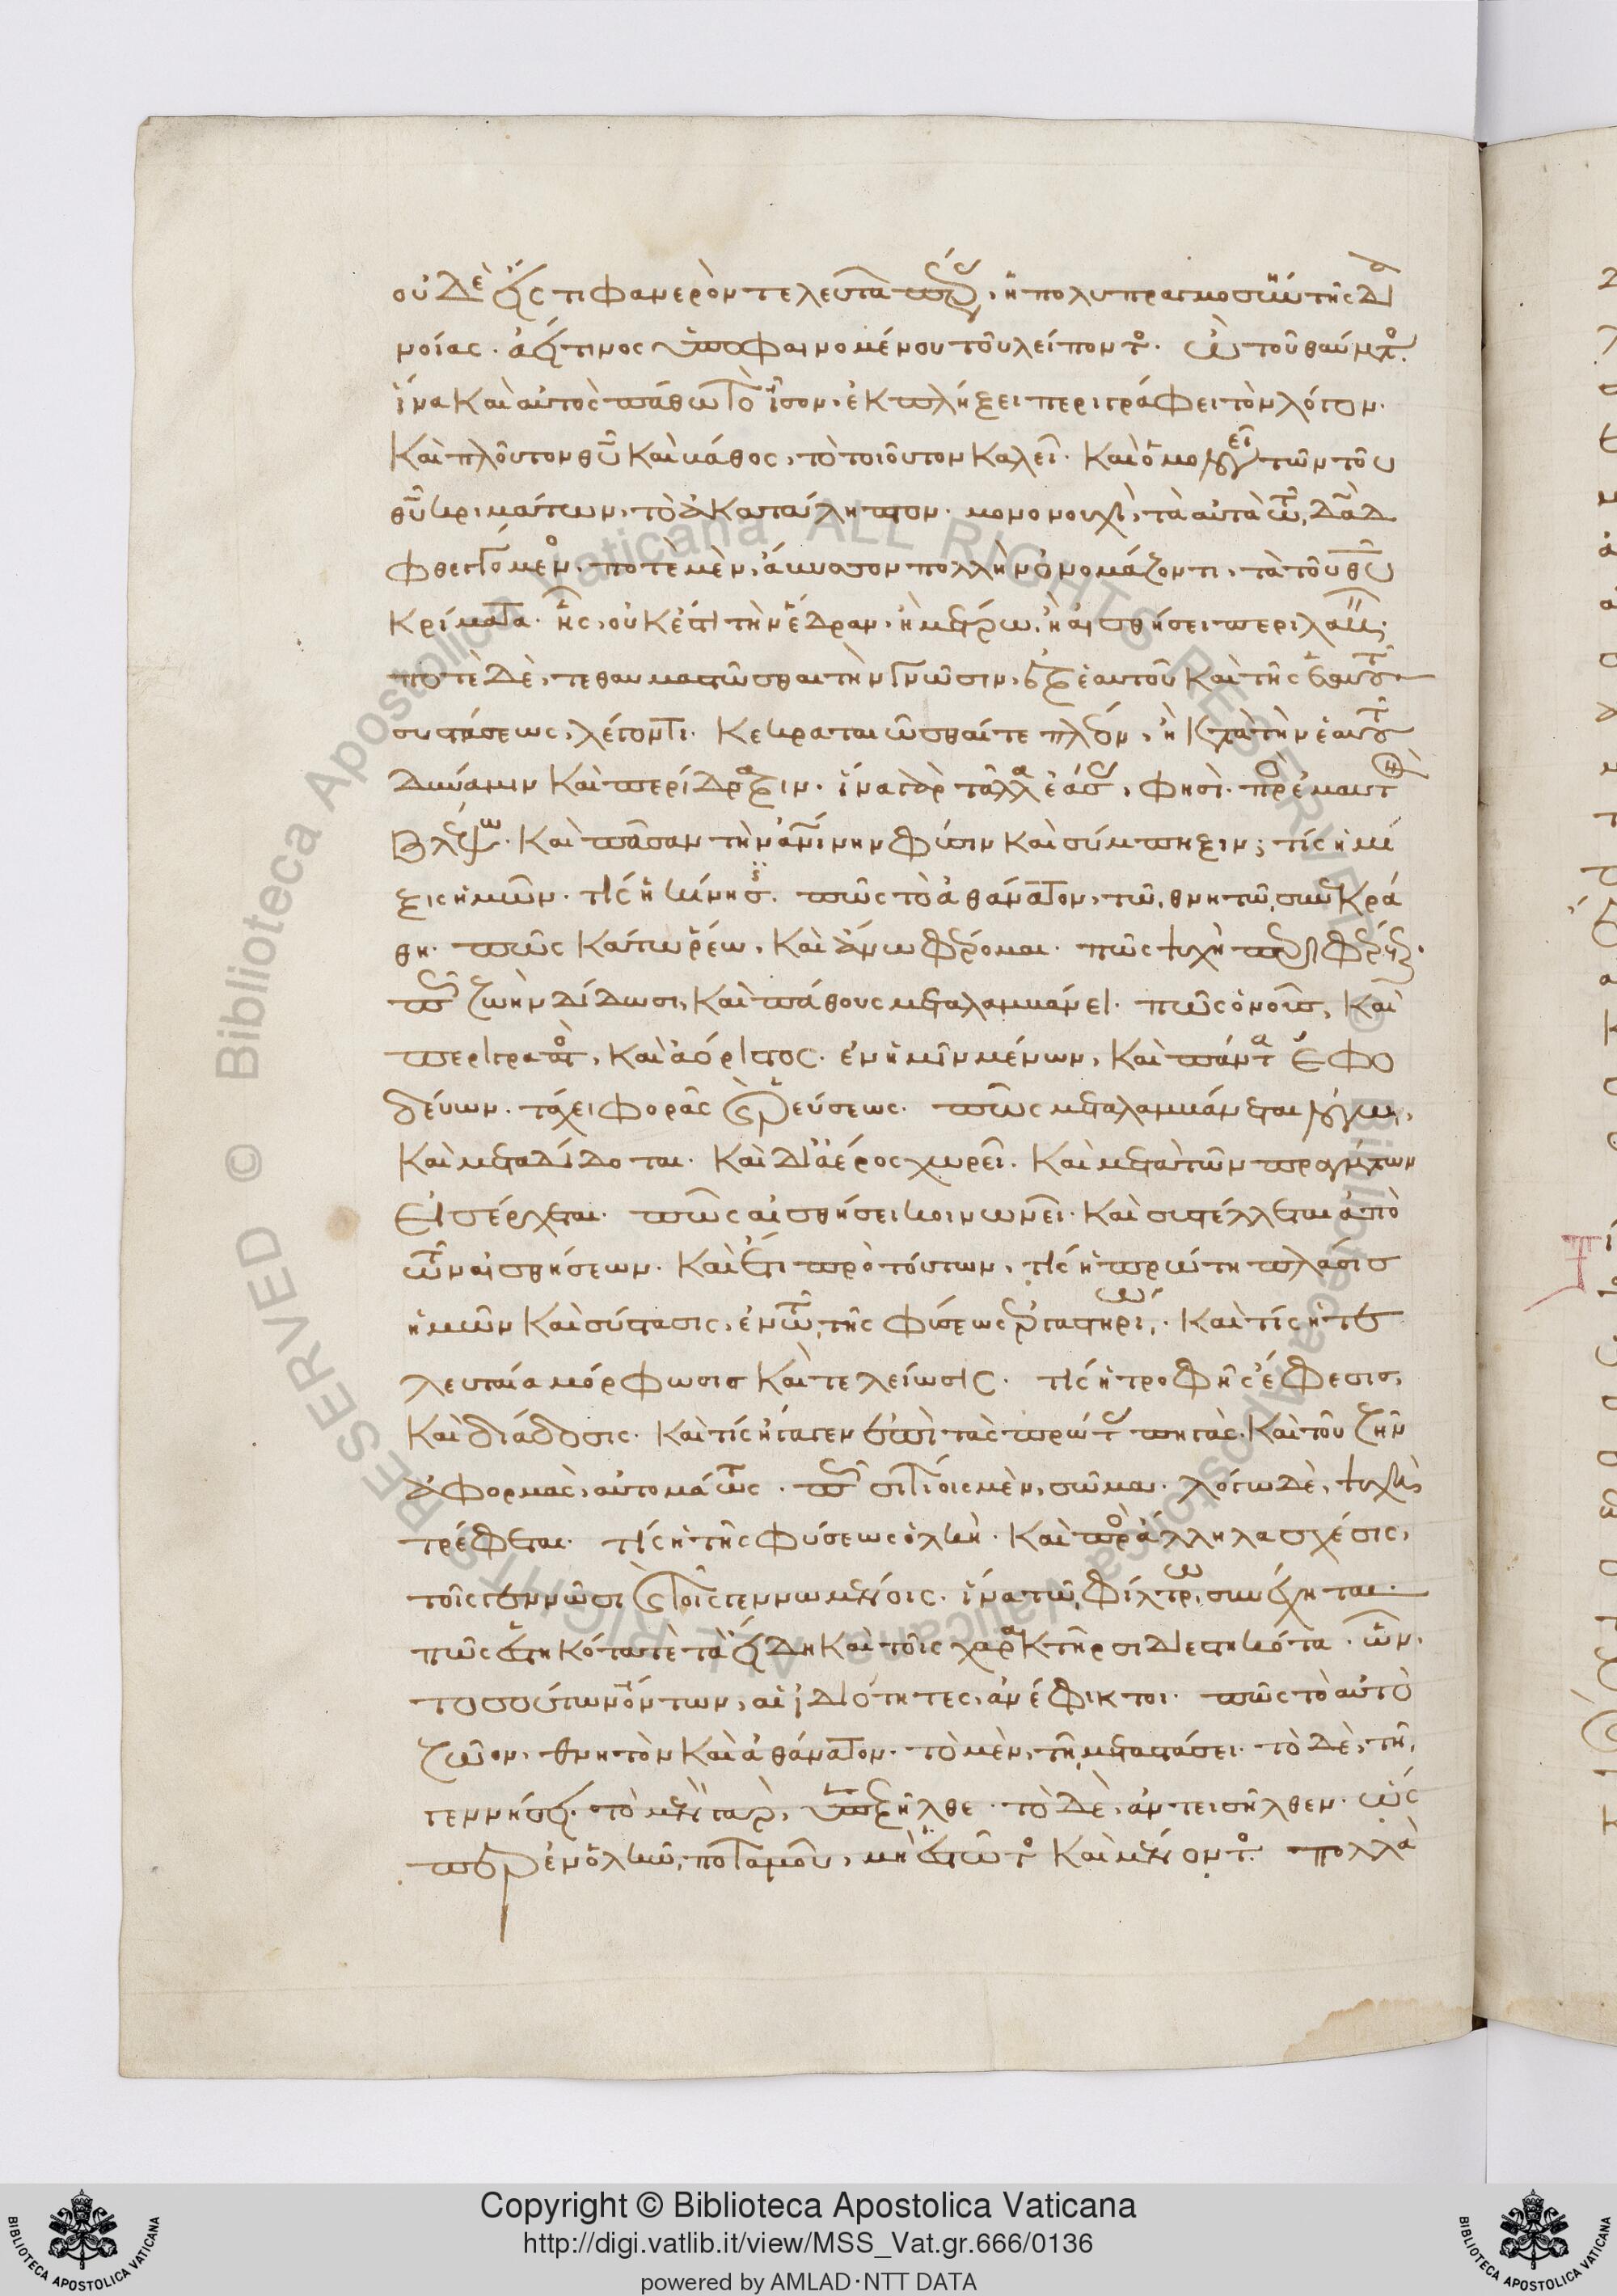 οὐδὲ ἔχει τι φανερὸν τελευτῶσα πέρας, ἡ πολυπραγμοσύνη τῆς δια
νοίας. ἀεί τινος ὑποφαινομένου τοῦ λείποντος. ὢ τοῦ θαύματος.
ἵνα καὶ αὐτὸς πάθω τὸ ἴσον, ἐκπλήξει περιγράφει τὸν λόγον.
καὶ πλοῦτον θεοῦ καὶ βάθος, τὸ τοιοῦτον καλεῖ. καὶ ὁμολογεῖ τῶν τοῦ
θεοῦ κριμάτων, τὸ ἀκατάληπτον. μονονουχὶ, τὰ αὐτὰ τῷ δαδ
φθεγγόμενος. ποτὲ μὲν, ἄβυσσον πολλὴν ὀνομάζοντι, τὰ τοῦ θεοῦ
κρίματα. ἧς, οὐκ ἔστι τὴν ἕδραν, ἢ μέτρῳ, ἢ αἰσθήσει περιλαβεῖν.
ποτὲ δὲ, τεθαυμαστῶσθαι τὴν γνῶσιν, ἐξ ἑαυτοῦ καὶ τῆς ἑαυτοῦ
συστάσεως, λέγοντι. κεκραταιῶσθαί τε πλέον, ἢ κατὰ τὴν ἑαυτοῦ
δύναμιν καὶ περίδραξιν. ἵνα γὰρ τἄλλα ἐάσας, φησὶ. πρὸς ἐμαυτὸν
βλέψω. καὶ πᾶσαν τὴν ἀνθρωπίνην φύσιν καὶ σύμπηξιν; τίς ἡ μί
ξις ἡμῶν. τίς ἡ κίνησις. πῶς τὸ ἀθάνατον, τῷ θνητῷ συνεκρά
θη. πῶς κάτω ῥέω, καὶ ἄνω φέρομαι. πῶς ψυχὴ περιφέρεται.
πῶς ζωὴν δίδωσι, καὶ πάθους μεταλαμβάνει. πῶς ὁ νοῦς, καὶ
περιγραπτὸς, καὶ ἀόριστος. ἐν ἡμῖν μένων, καὶ πάντα ἐφο
δεύων. τάχει φορᾶς καὶ ῥεύσεως. πῶς μεταλαμβάνεται λόγῳ,
καὶ μεταδίδοται. καὶ δι' ἀέρος χωρεῖ. καὶ μετὰ τῶν πραγμάτων
εἰσέρχεται. πῶς αἰσθήσει κοινωνεῖ. καὶ συστέλλεται ἀπὸ
τῶν αἰσθήσεων. καὶ ἔτι πρὸ τούτων, τίς ἡ πρώτη πλάσις
ἡμῶν καὶ σύστασις, ἐν τῷ τῆς φύσεως ἐργαστηρίῳ. καὶ τίς ἡ τε
λευταία μόρφωσις καὶ τελείωσις. τίς ἡ τροφῆς ἔφεσις,
καὶ διάδοσις. καὶ τίς ἤγαγεν ἐπὶ τὰς πρώτας πηγὰς. καὶ τοῦ ζῆν
ἀφορμὰς, αὐτομάτως. πῶς σιτίοις μὲν, σῶμα. λόγῳ δὲ, ψυχὴ
τρέφεται. τίς ἡ τῆς φύσεως ὁλκὴ. καὶ πρὸς ἄλληλα σχέσις,
τοῖς γεννῶσι καὶ τοῖς γεννωμένοις. ἵνα τῷ φίλτρῳ συνέχηται.
πῶς ἑστηκότα τὲ τὰ εἴδη καὶ τοῖς χαρακτῆρσι διεστηκότα. ὧν,
τοσούτων ὄντων, αἱ ἰδιότητες, ἀνέφικτοι. πῶς τὸ αὐτὸ
ζῶον, θνητὸν καὶ ἀθάνατον. τὸ μὲν, τῇ μεταστάσει. τὸ δὲ, τῇ
γεννήσει. τὸ μὲν γὰρ, ὑπεξῆλθε. τὸ δὲ, ἀντεισῆλθεν. ὡς
περ ἐν ὁλκῷ ποταμοῦ, μὴ ἑστῶτος καὶ μένοντος. πολλὰ